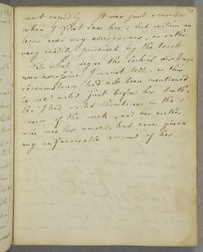 most rapidly. It was just sensible
when I first saw her; but within an
hour was very conspicuous, or rather
very readily perceived by the touch
In what degree the lochial discharge
was excessive I cannot tell, as this
circumstance had not been mentioned
to me until just before her death,
She had sensible in the
of the neck, and her mother
who was her nurse, had never given
any unfavourable account of her.